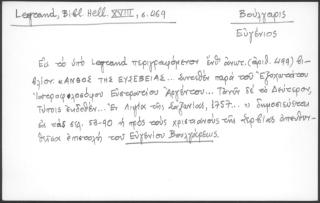 Legrand, Bibl. Hell. XVIII, σ. 469
Βούλγαρις
Εὐγένιος
Εἰς τὸ ὑπὸ Legrand περιγραφόμενον ἔνθ' ἀνωτ. (ἀριθ. 499) βι-
βλίον: «ΑΝΘΟΣ ΤΗΣ ΕΥΣΕΒΕΙΑΣ... Συντεθὲν παρὰ τοῦ Ἐξοχωτάτου
Ἰατροφιλοσόφου Εὐστρατίου Ἀργέντου... Τανῦν δὲ τὸ Δεύτερον,
Τύποις ἐκδοθέν... Ἐν Λιψίᾳ τῆς Σαξωνίας, 1757...» δημοσιεύεται
εἰς τὰς σελ. 53-90 ἡ πρὸς τοὺς χριστιανοὺς τῆς Σερβίας ἀπευθυν-
θεῖσα ἐπιστολὴ τοῦ Εὐγενίου Βουλγάρεως.